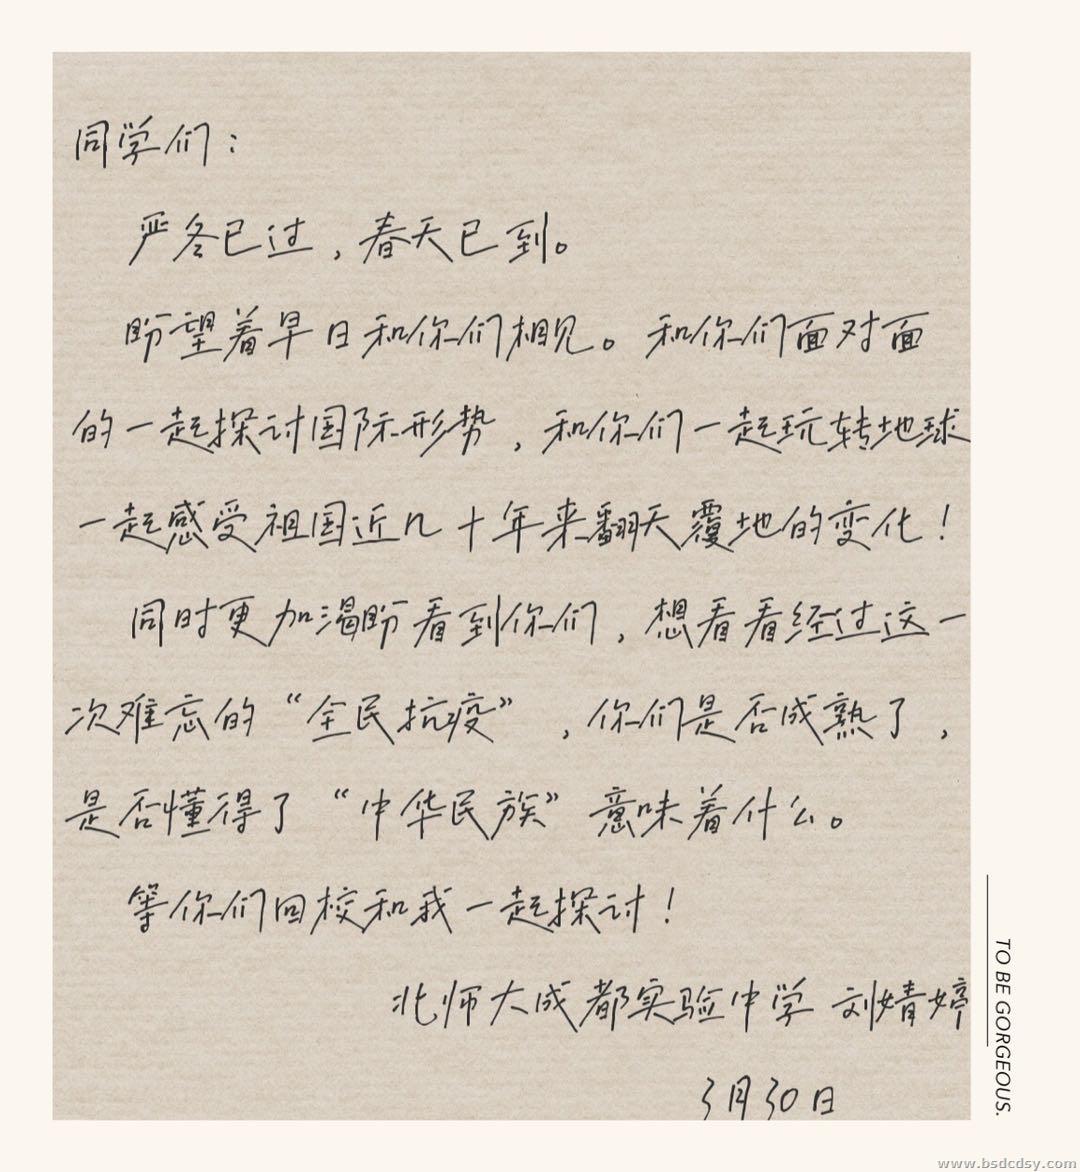 同学们：
严冬已过，春天已到。
盼望着早日和你们相见。和你们面对面
的一起探讨国际形势，和你们一起玩转地球
一起感受祖国近几十年来翻天覆地的变化！
同时更加渴盼看到你们，想看看经过这一
次难忘的“全民抗疫”，你们是否成熟了，
是否懂得了“中华民族”意味着什么。
等你们回校和我一起探讨！
北师大成都实验中学 刘婧婷
3月30日
TO BE GORGEOUS.
www.bsdcdsy.com